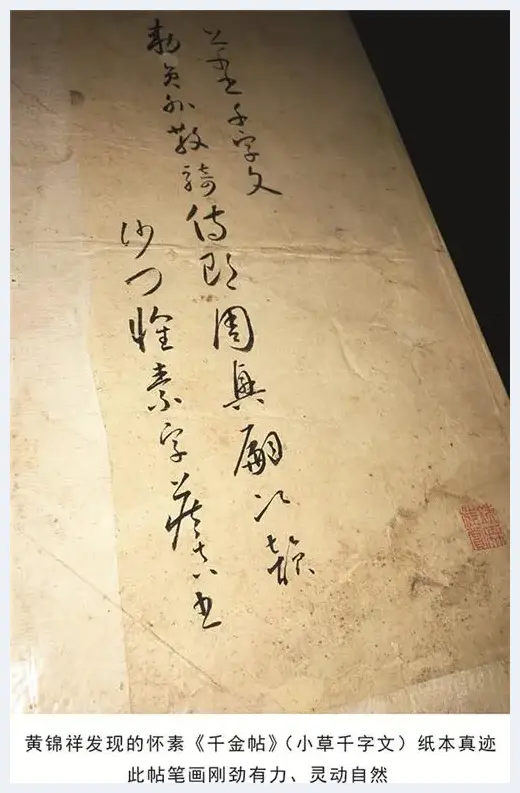 千字文
勅員外散騎侍郎周興嗣次韻
沙门懷素字藏真
黄锦祥发现的怀素《千金帖》（小草千字文）纸本真迹
此帖笔画刚劲有力、灵动自然